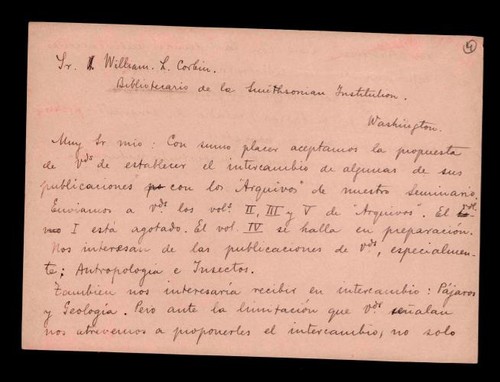 4
Sr. William. L. Corbin.
Bibliotecario de la Smithsonian Institution.
Washington.
Muy Sr mio: Con sumo placer aceptamos la propuesta
de Vds de establecer el intercambio de algunas de sus
publicaciones con los "Arquivos" de nuestro Seminario.
Enviamos a Vds los vols. II, III y V de "Arquivos". El vol.
I está agotado. El vol. IV se halla en preparación.
Nos interesan de las publicaciones de Vds, especialmen-
te; Antropologia e Insectos.
Tambien nos interesaría recibir en intercambio: Pájaros
y Geología. Pero ante la limitación que Vds señalan
nos atrevemos a proponerles el intercambio, no solo